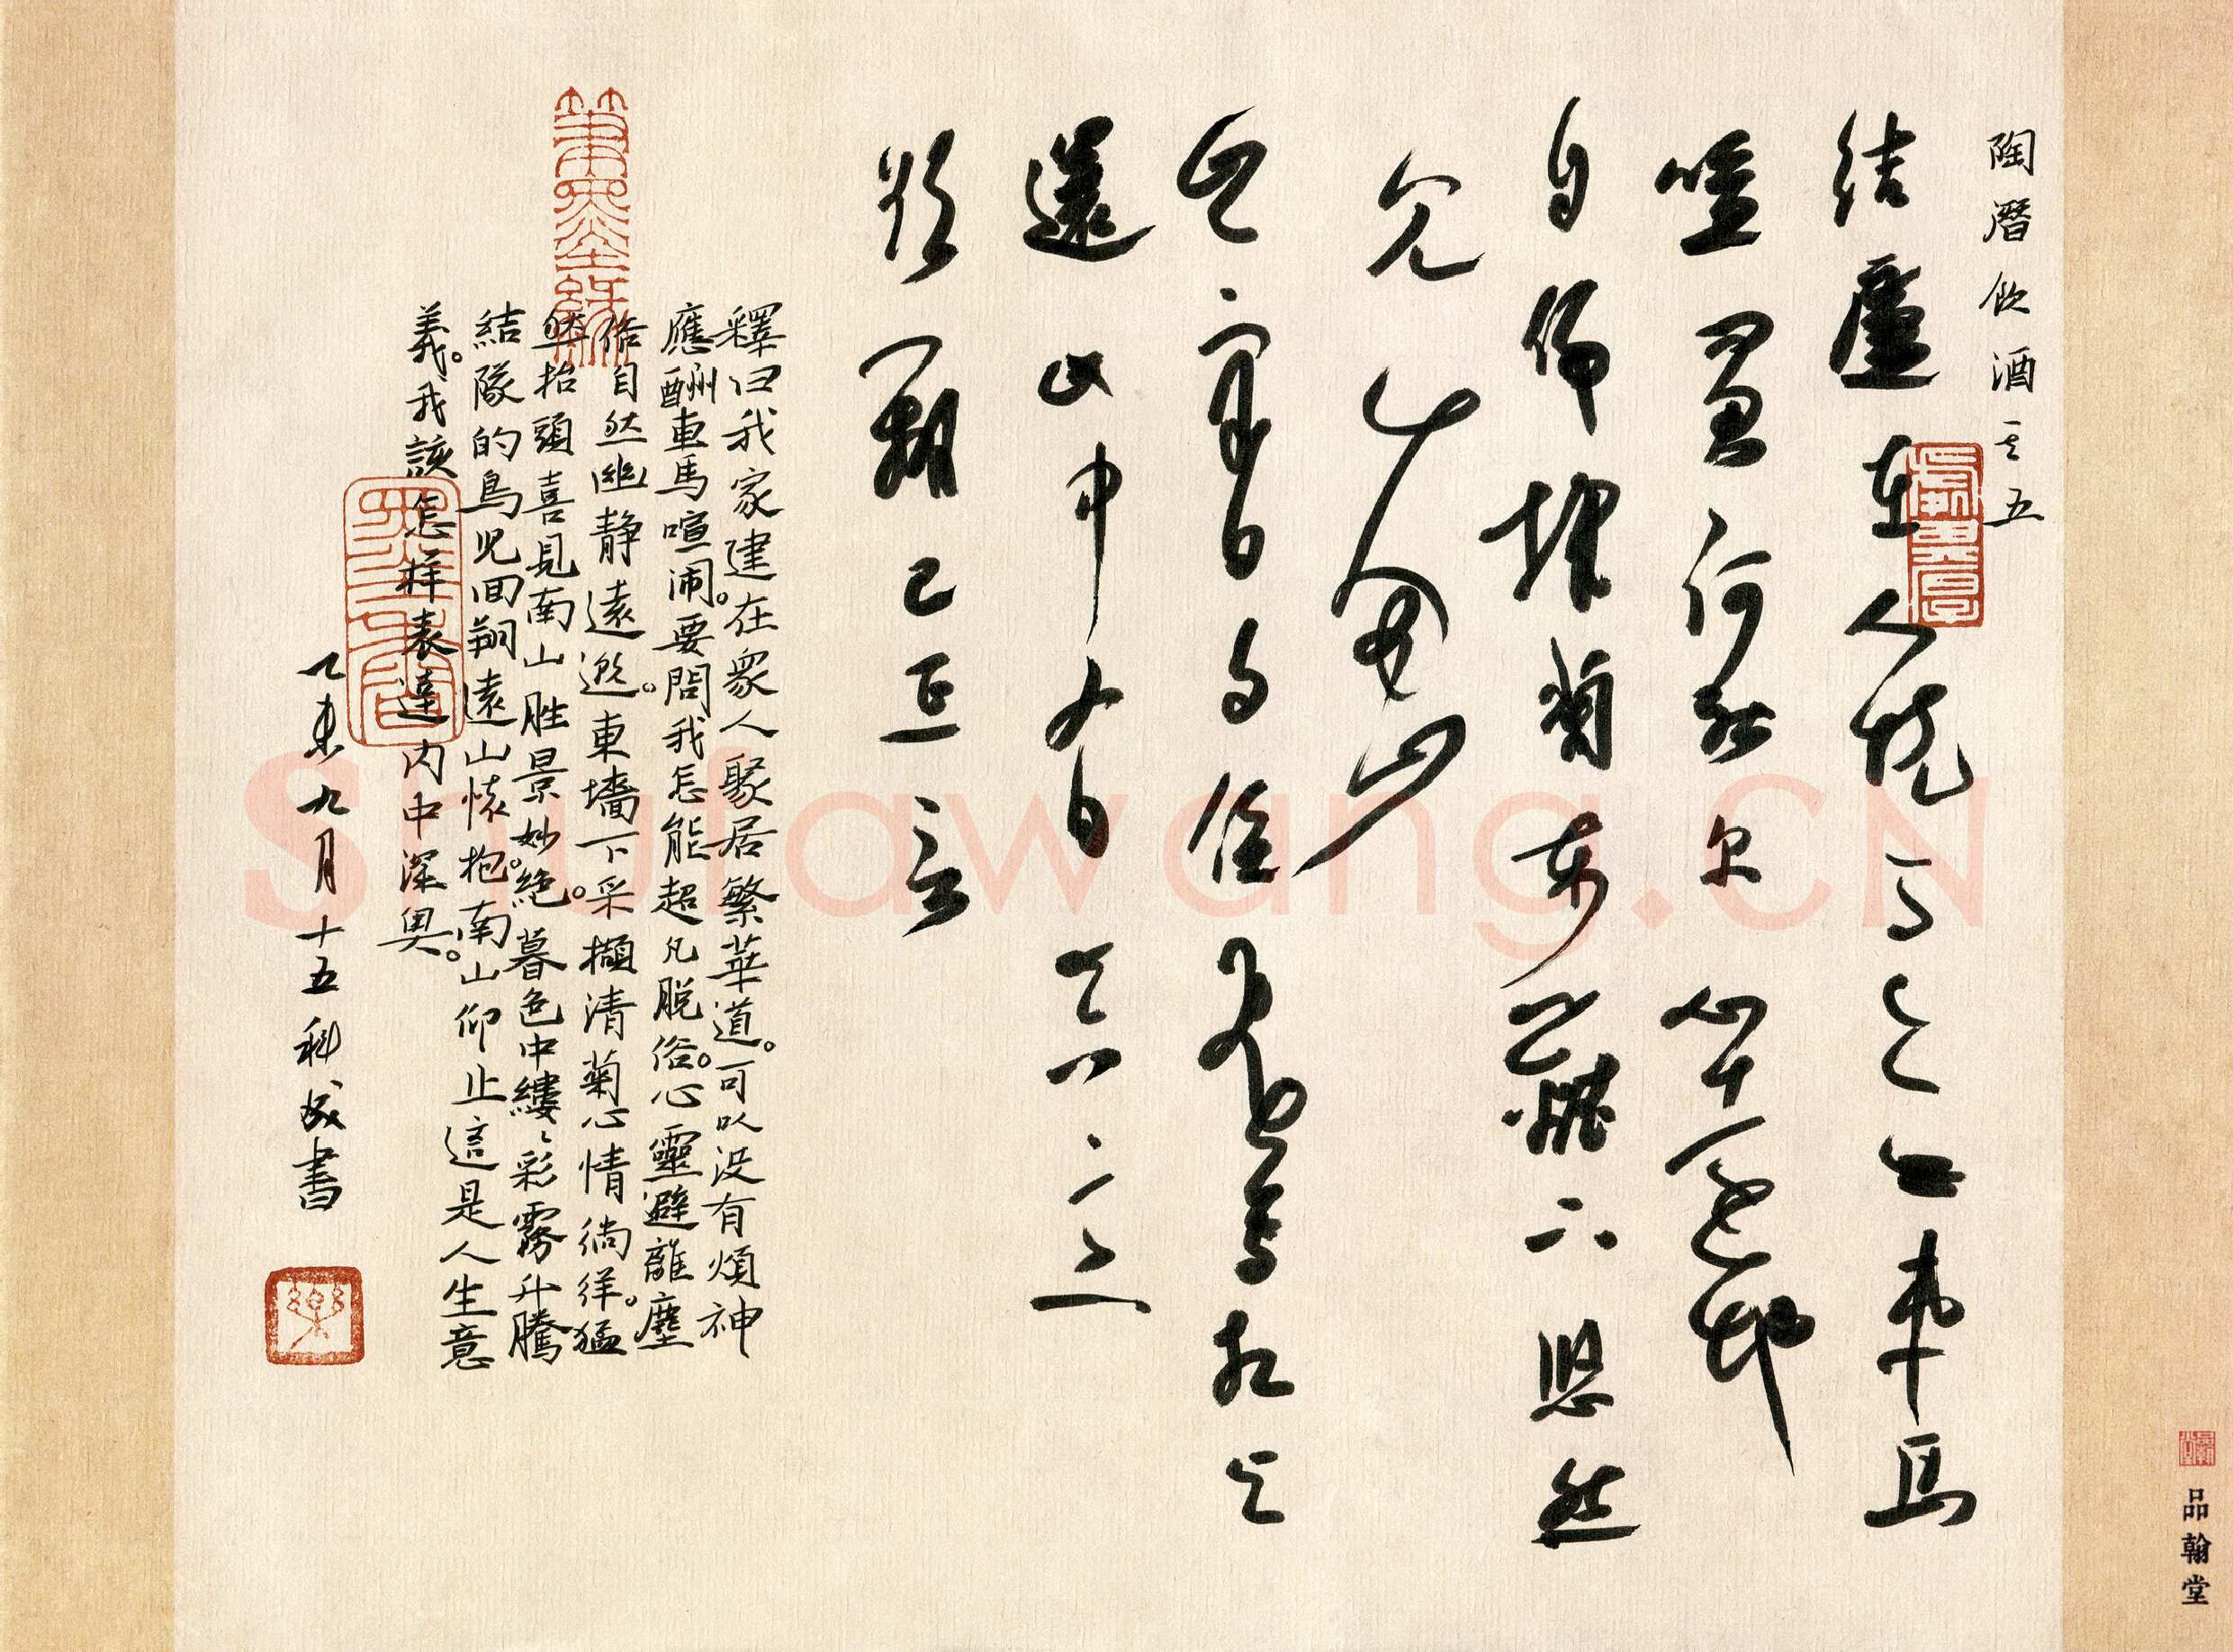 陶潛飲酒其五
結廬在人境而無車馬
喧問君何能爾心遠地
自偏採菊東籬下悠然
見南山
山氣日夕佳飛鳥相與
還此中有真意
欲辨已忘言
釋曰我家建在衆人聚居繁華道。可以没有煩神
應酬車馬喧闹。要問我怎能超凡脱俗。心靈避離塵
俗自然幽静遠邈。東墻下。采擷清菊心情徜徉。猛
然抬頭喜見南山胜景妙絶。暮色中縷々彩霧升騰
結隊的鳥児回翔遠山懷抱南山仰止這是人生意
義。我該怎样表達内中深奥。
乙未九月十五科成書
樂
品翰堂
Shufawang.CN